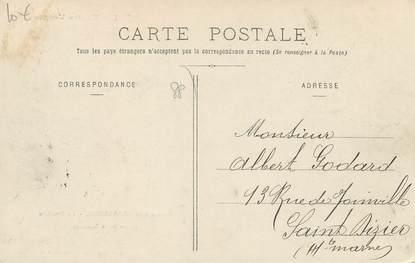 10 €
CARTE POSTALE
Tous les pays étrangers n'acceptent pas la correspondance au recto (Se renseigner à la Poste)
CORRESPONDANCE
ADRESSE
Monsieur
Albert Godard
13 Rue de Joinville
Saint Dizier
(Hte marne)